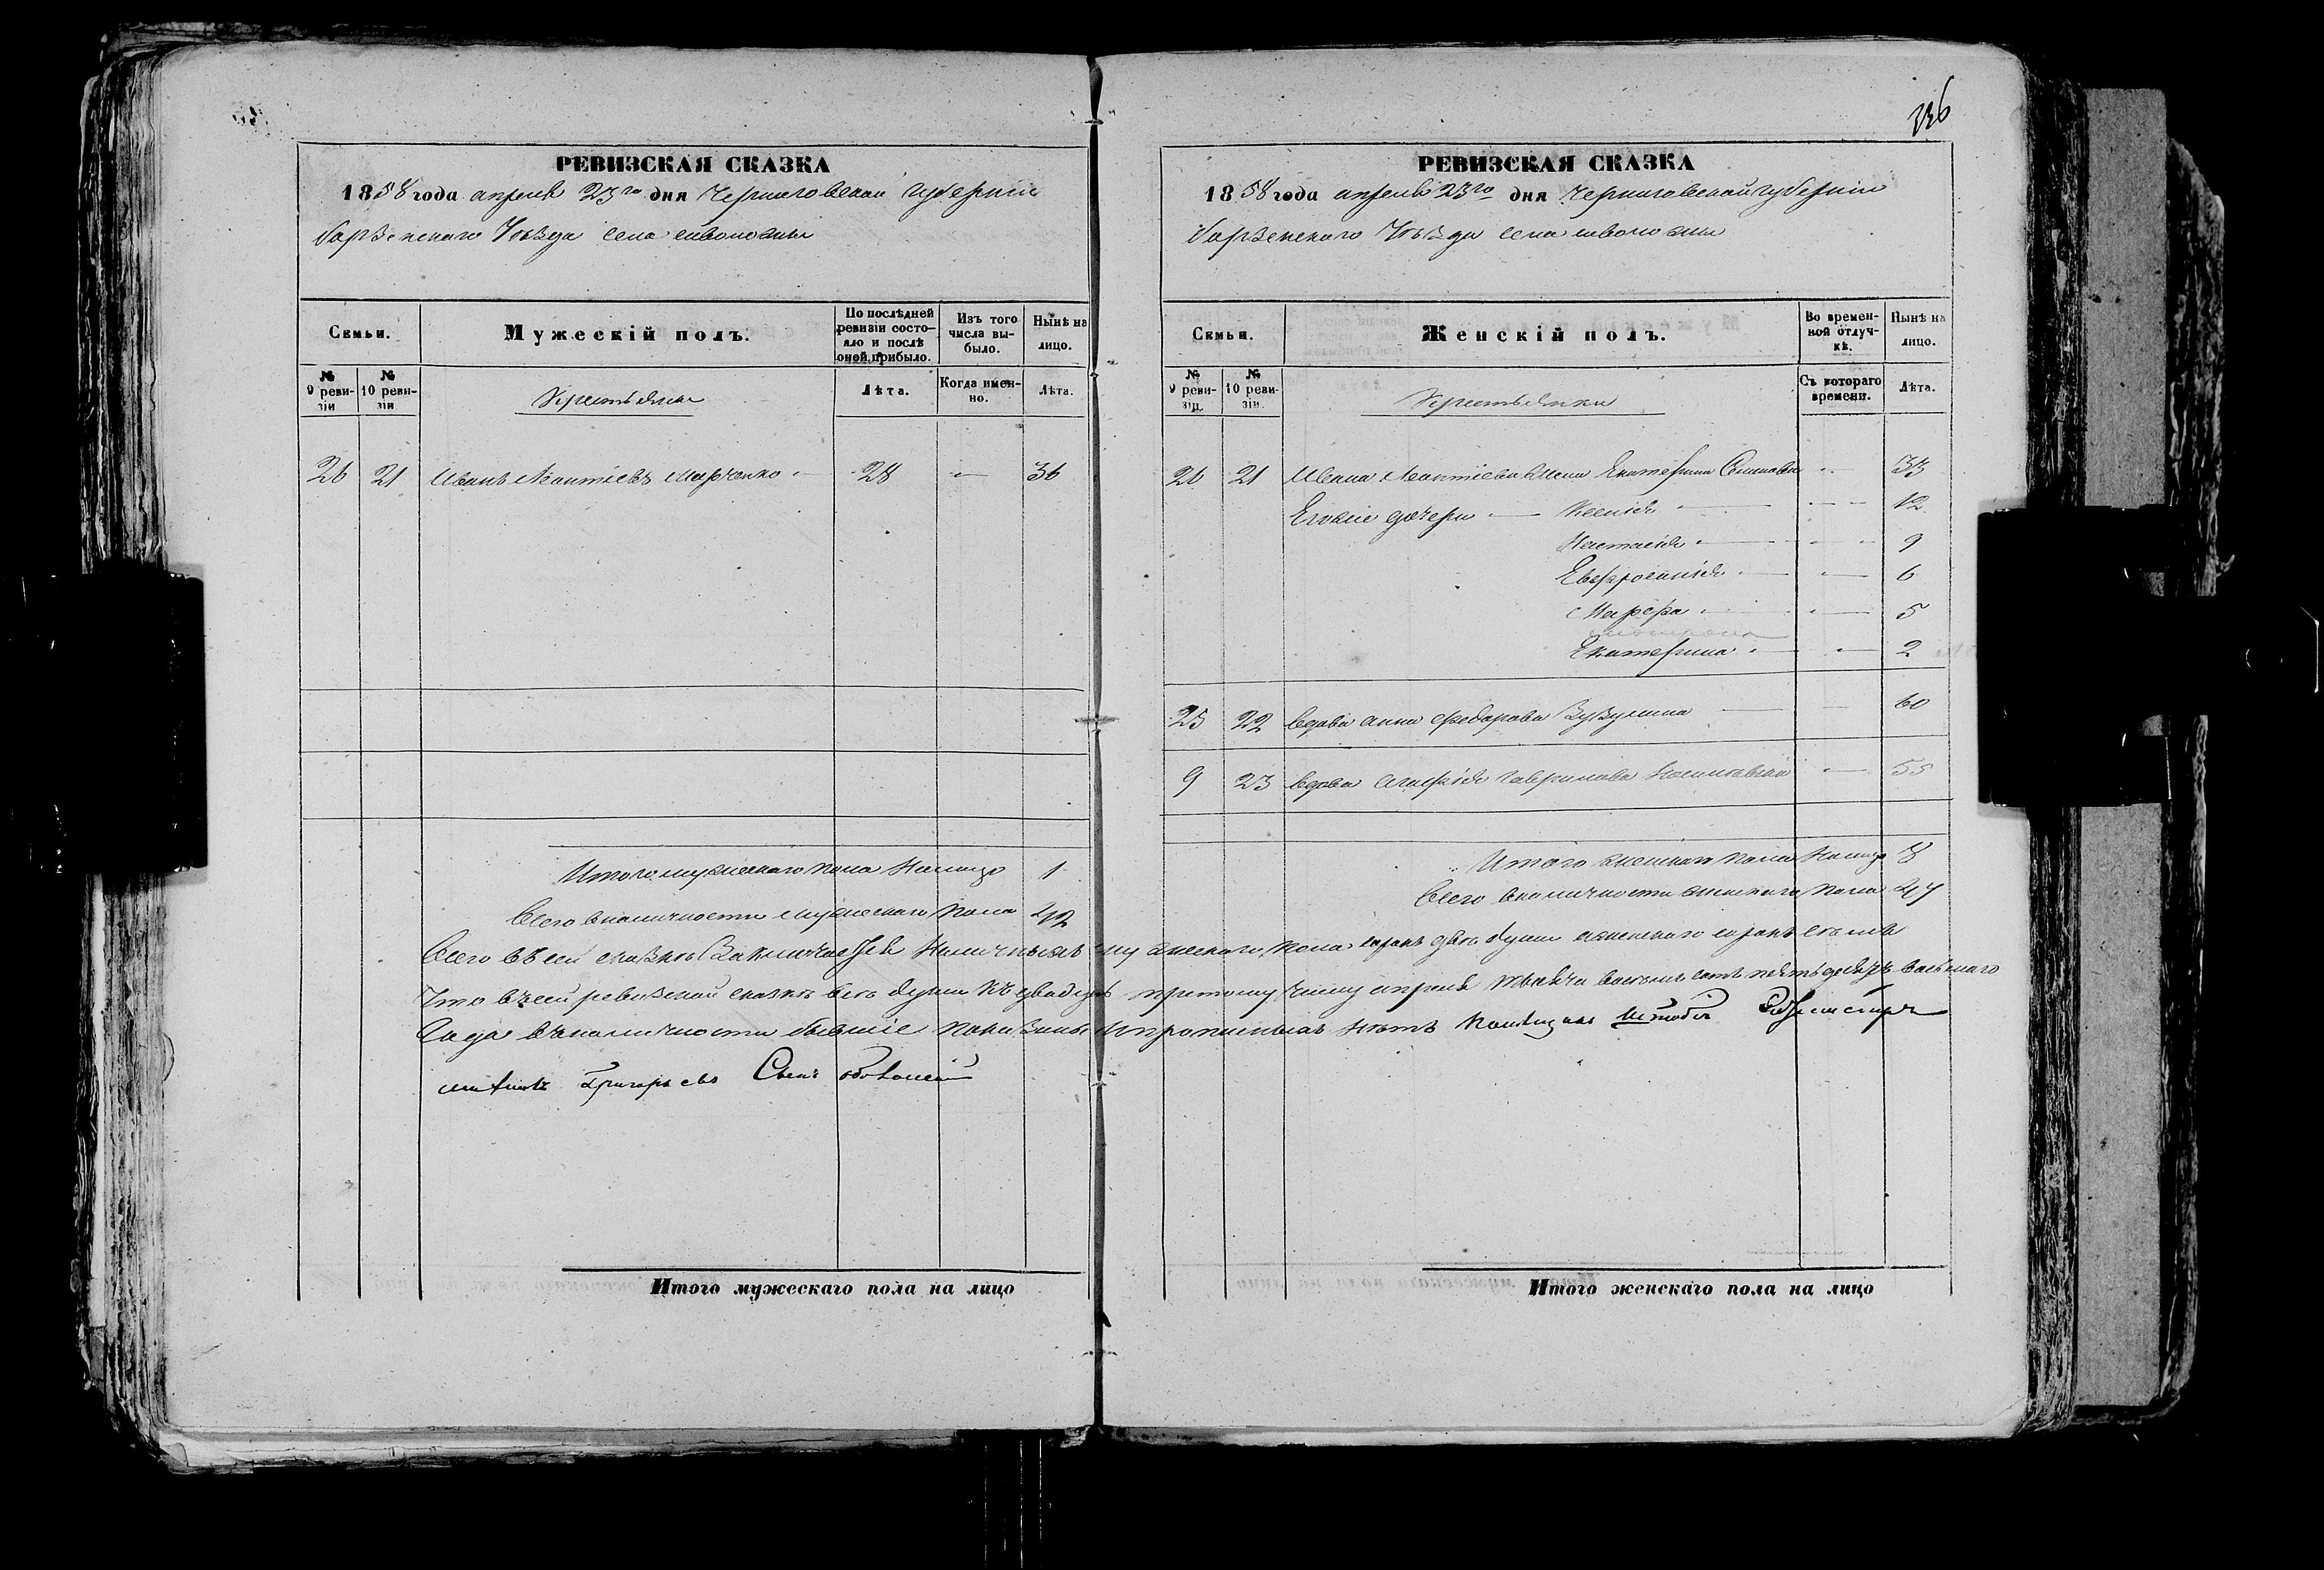 336
РЕВИЗСКАЯ СКАЗКА
1858 года апреля 23го дня Черниговской губернии
Борзенского Уѣзда села
Семьи.
Мужескій полъ.
По послѣдней ревизіи состояло и послѣ оной прибыло.
Изъ того числа выбыло.
Нынѣ на лицо.
№ 9 ревизіи
№ 10 ревизіи
Крестьяне
Лѣта.
Когда именно.
Лѣта.
26 21 Иванъ Леонтіевъ Марченко — 28 — 36
Итого мужескаго пола налицо 1
Всего вналичности мужескаго пола 42
РЕВИЗСКАЯ СКАЗКА
1858 года апреля 23го дня Черниговской губерніи
Борзенского Уѣзда села
Семьи.
Женскій полъ.
Во временной отлучкѣ.
Нынѣ на лицо.
№ 9 ревизіи.
№ 10 ревизіи.
Крестьянки
Съ котораго времени.
Лѣта.
26 21 Ивана Леонтіева жена Екатерина — 33
Егоже дочери — Ксенія — 12
Настасія — 9
Евфросинія — 6
Марфа — 5
Екатерина — 2
25 22 вдова анна федорова Зузулина — 60
9 23 вдова гаврилова — 55
Итого женскаго пола налицо 8
Всего вналичности женскаго пола 47
Всего въ сей сказкѣ Заключается Наличныхъ мужескаго пола сорокъ двѣ души женскаго сорокъ семь
Что въ сей ревизской сказкѣ всѣ души къ двадцать третьему числу апреля тысяча восемь сотъ пятьдесятъ восьмаго
Года въ наличности бывшіе показаны и прописныхъ нѣтъ
Григорьевъ
Итого мужескаго пола на лицо
Итого женскаго пола на лицо